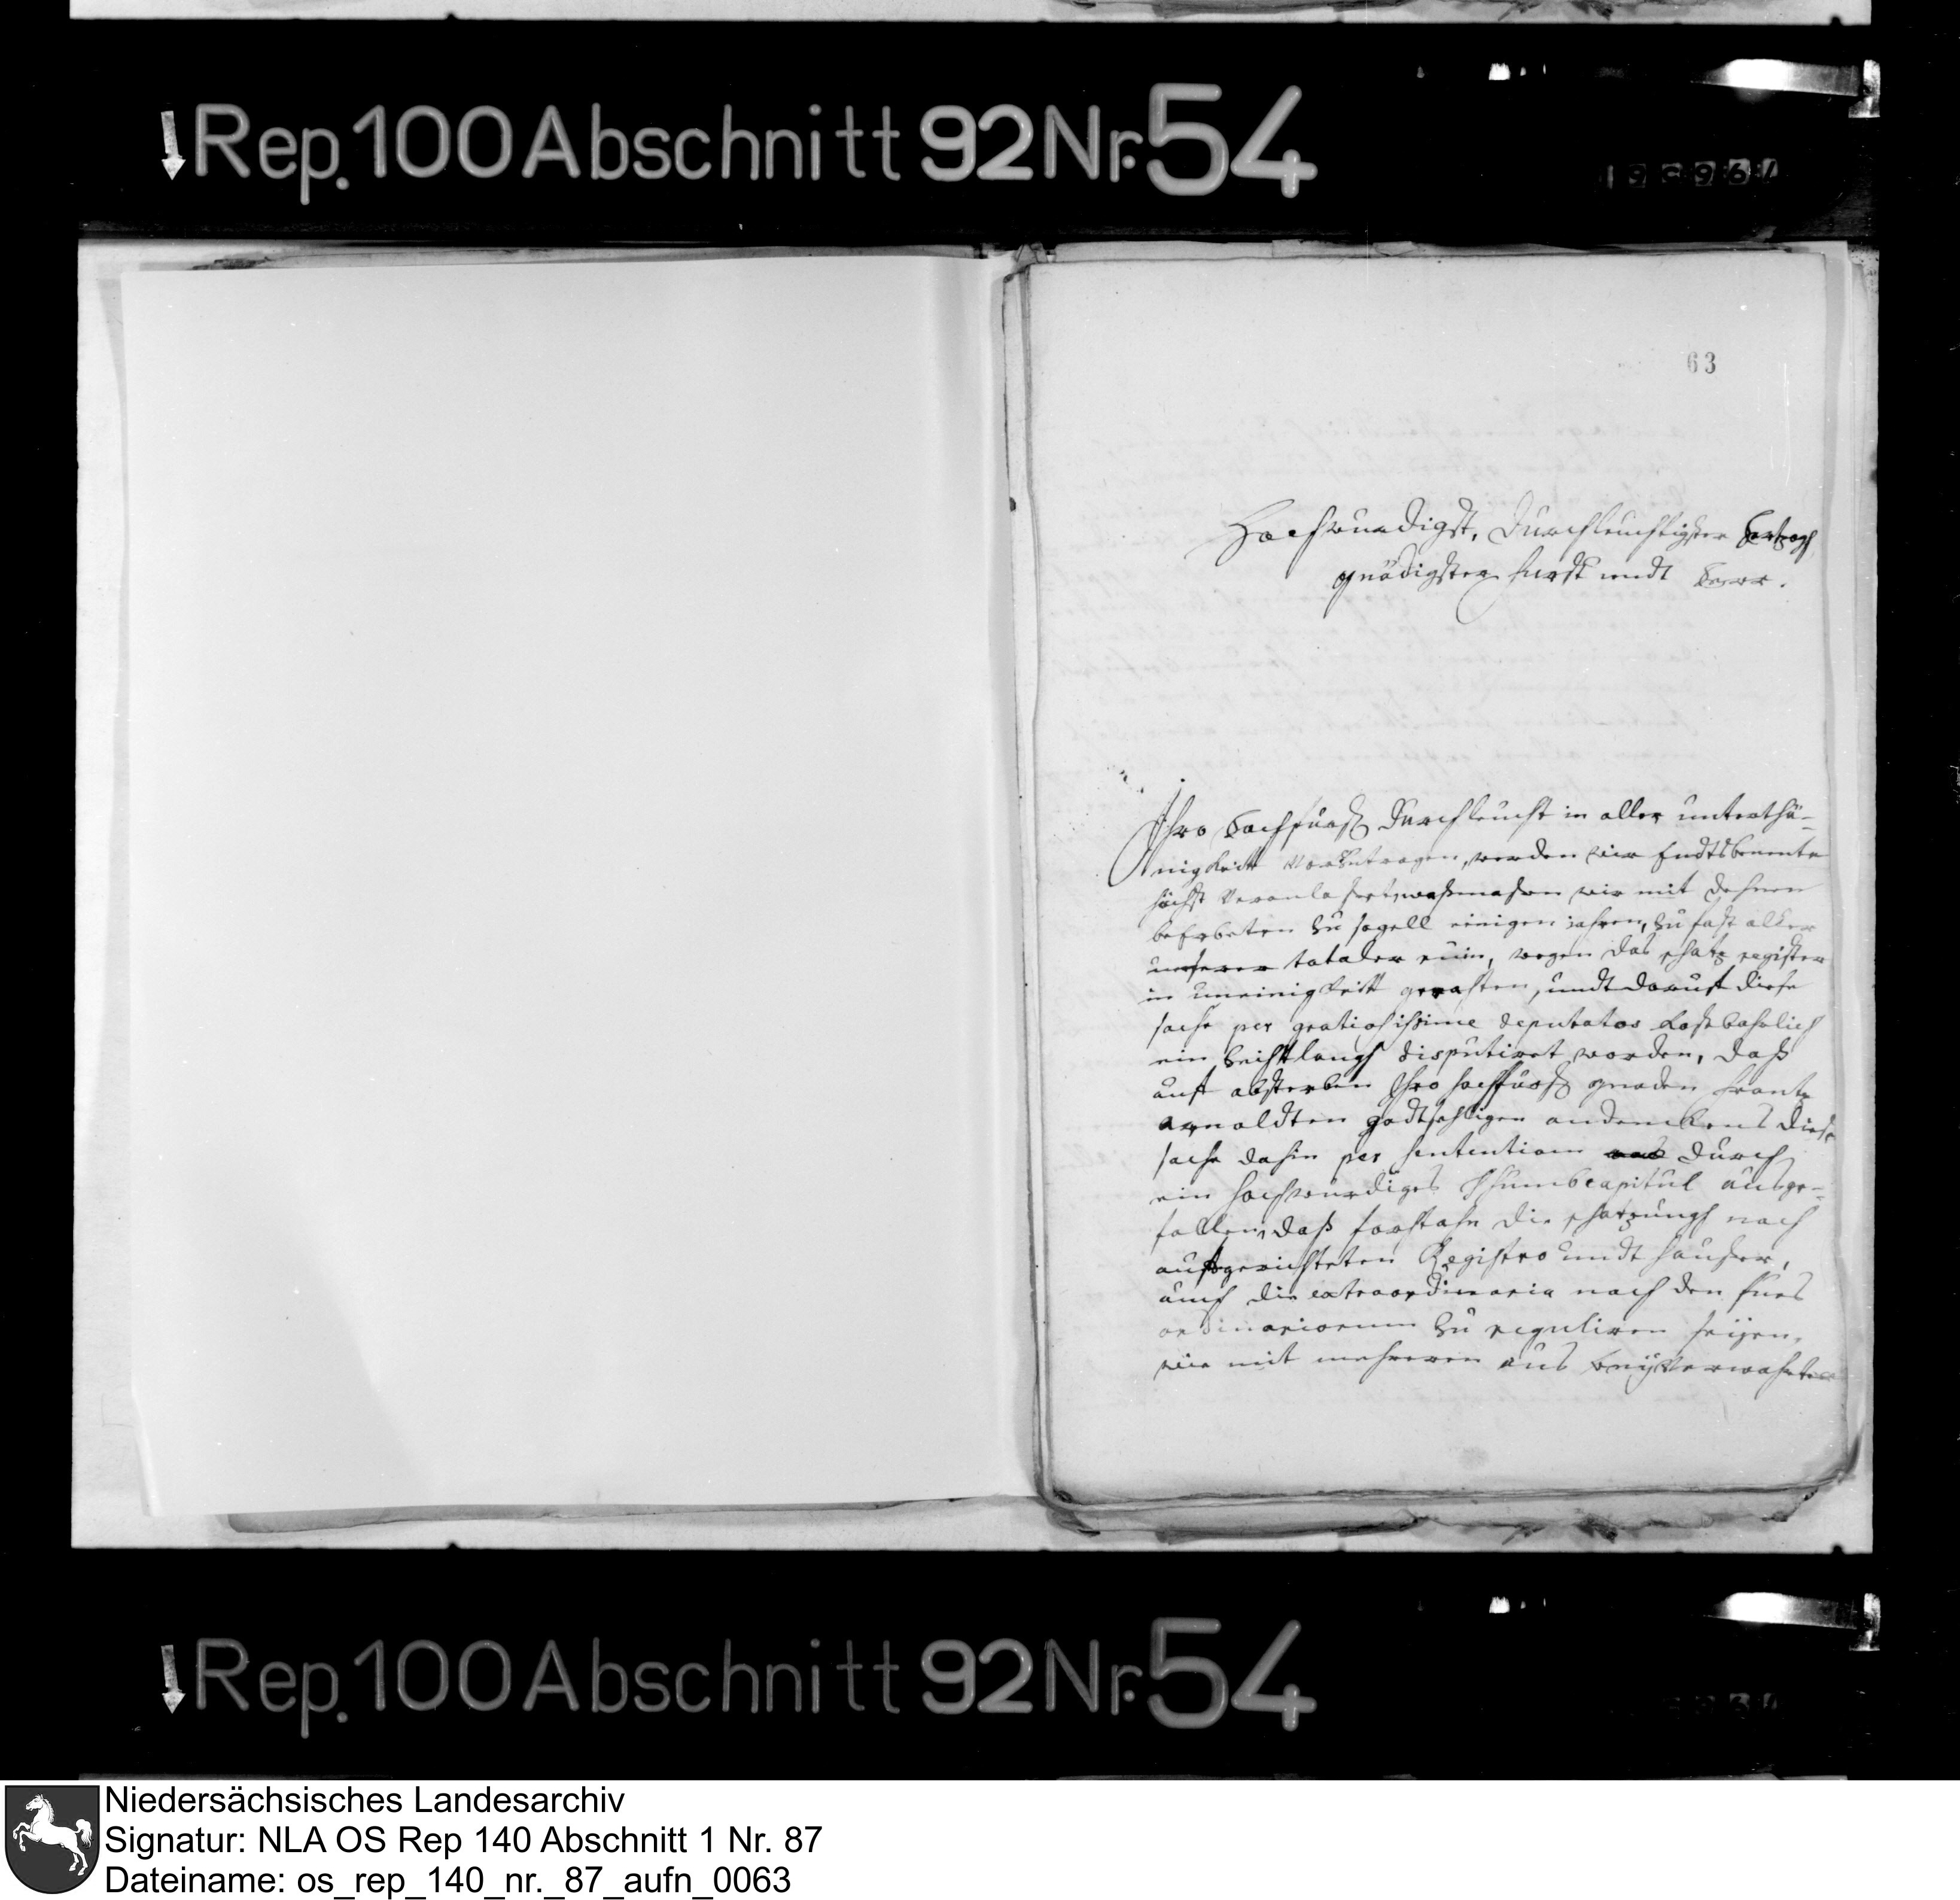 Rep. 100 Abschnitt 92 Nr. 54
63
Hochwurdigst, Durchleuchtigster Hertzogh
gnädigster furst undt Herr.
Ihro Hochfürstl Durchleucht in aller unterthä-
nigkeitt vorZutragen, werden wir Endtsbenente
höchst veranlasset, waßmaßen wir mit dehnen
Zu sogell einigen jahren, Zu fast aller
unserer totaler ruin, wegen das schatz register
in uneinigkeitt gerahten, undt darauf diese
sache per gratiosissime deputatos kostbahrlich
ein Zeittlangh disputiret worden, daß
auf absterben Ihro hochfürstl gnaden frantz
arnoldten godtsehligen andenckens diese
sache dahin per sententiam durch
ein hochwürdiges Thumbcapitul außge-
fallen, daß forthahn die schatzungh nach
aufgerichteten Registro undt häußer,
auch die extraordinaria nach den fueß
ordinariorum Zu reguliren seÿen,
wie mit mehreren auß
Rep. 100 Abschnitt 92 Nr. 54
Niedersächsisches Landesarchiv
Signatur: NLA OS Rep 140 Abschnitt 1 Nr. 87
Dateiname: os_rep_140_nr._87_aufn_0063